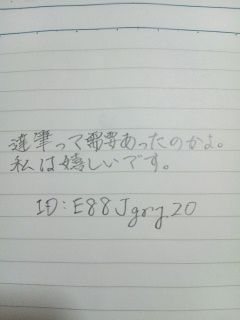 達筆って需要あったのかよ。
私は嬉しいです。
ID:E88Jgry20